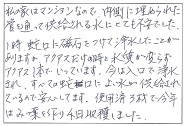 私の家はマンションなので、内側に埋められた
管を通って供給される水にとても不安でした。
1時蛇口に磁石をつけて浄水したことが
ありますが、アクアスだけの時と水質が変らず
アクアス1本でいっています。今は入口で浄水
され、すべての蛇口によい水が供給されて
いるので安心してます。使用済みでも今年
はみごと作り今日収穫しました。